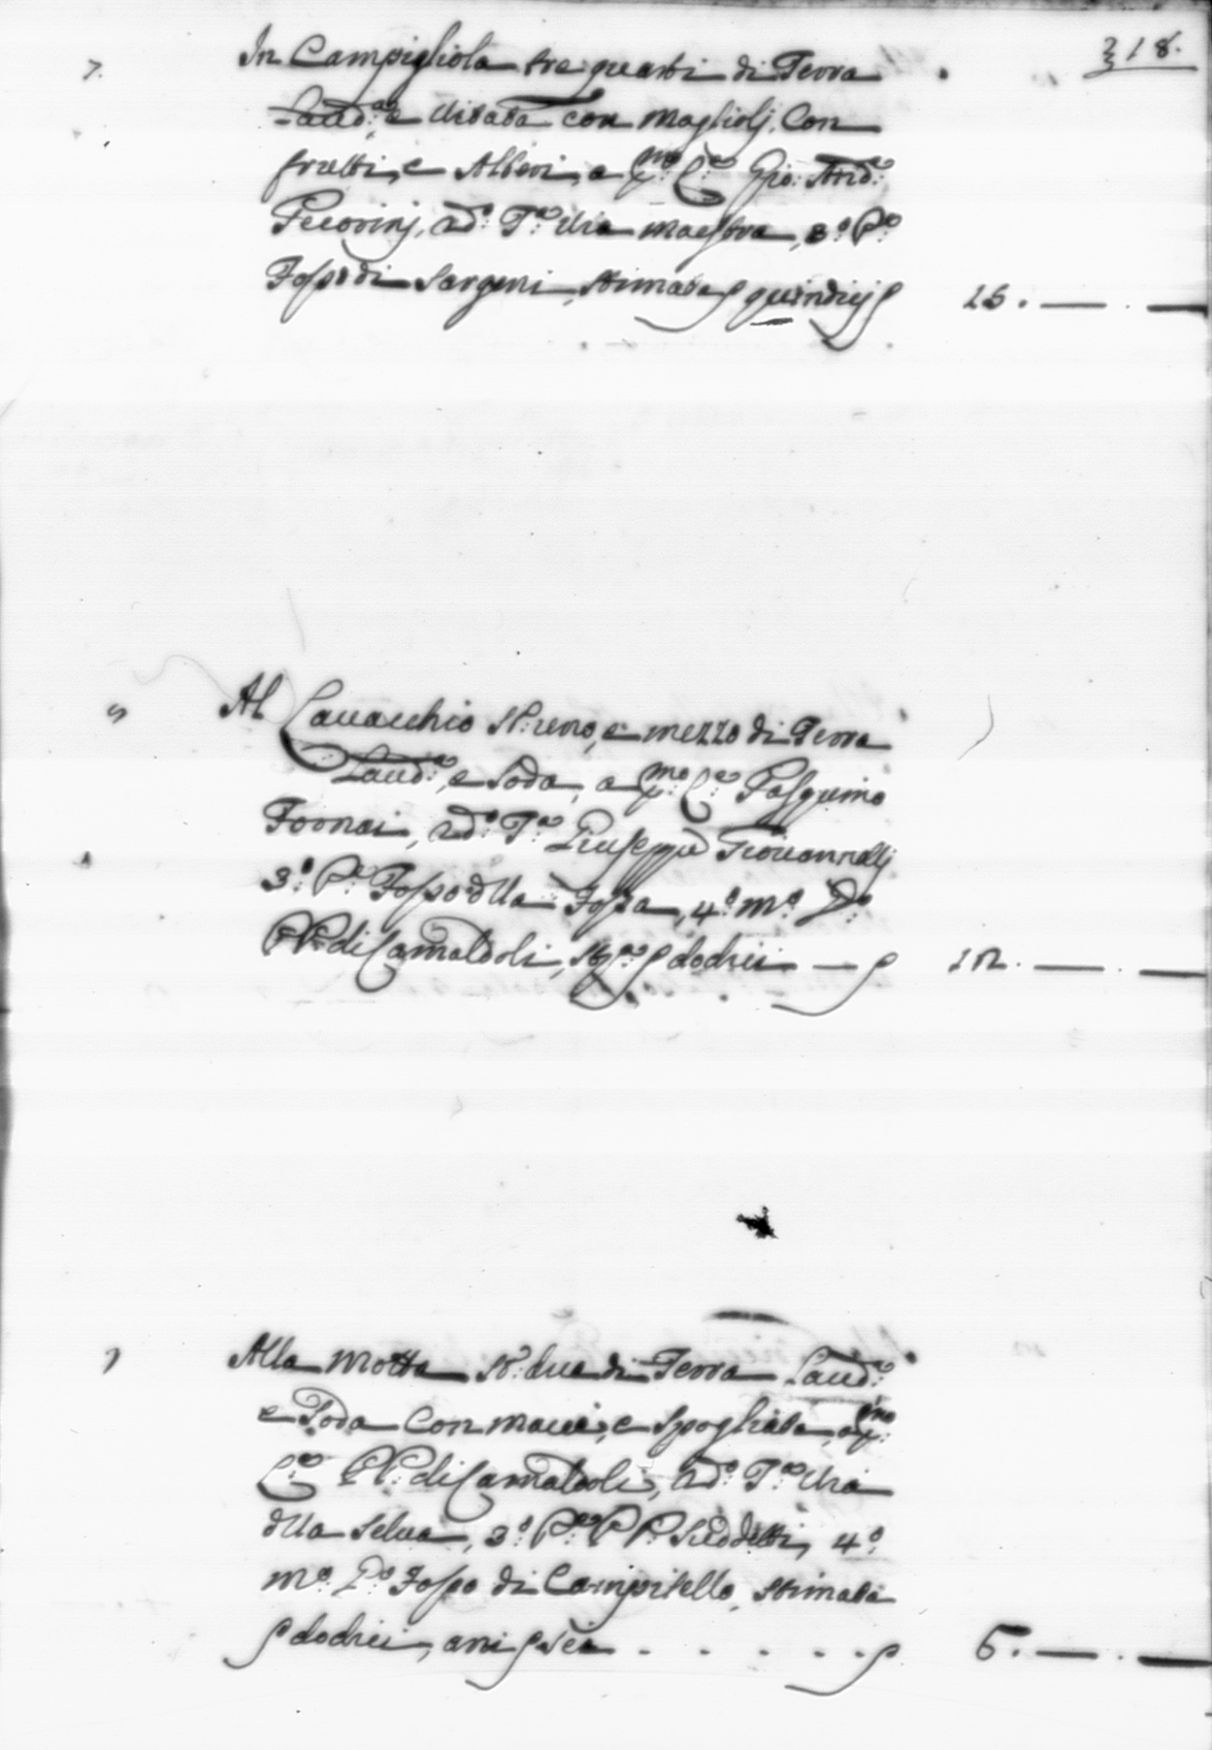 318.
7. In Campigliola tre quarti di Terra
Laud:a e Vitata con Maglioli, Con
frutti, e Alberi, a p:mo C:o Gio: And:a
Pecorini, 2d:o T:o Via Maestra, 3:o P:o
Fosso di Sargeni, Stimata quindici 15. — . —
Al Cavacchio St: uno, e mezzo di Terra
Laud:a, e Soda, a p:mo C:o Pasquino
Fornai, 2d:o T:o Giuseppe Giovannelli
3:o P:o Fosso d'lla Fossa, 4:o M:o
PP: di Camaldoli, dodici — 12. — . —
Alla Motta St: due di Terra Laud:a
e Soda Con Macie, e Spogliata, a p:mo
C:o PP: di Camaldoli, 2d:o T:o Via
d'lla Selva, 3:o P:o PP: Sudditti, 4:o
M:o P:o Fosso di Campitello, Stimata
dodici, anzi sei . . . . . 6. — . —